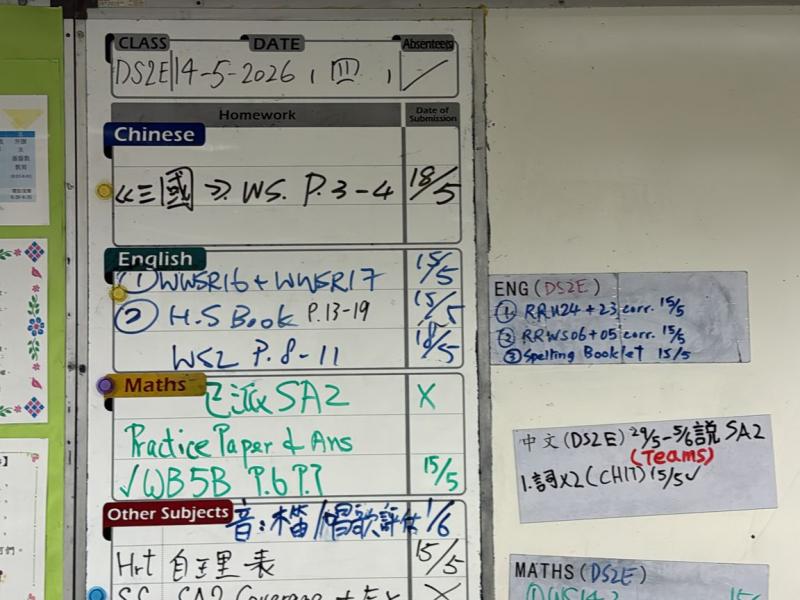 CLASS DATE Absentees
DS2E 14-5-2026, 四,
Homework Date of Submission
Chinese
《三國》WS. P.3-4 18/5
English
① WWSR16 + WWSR17 15/5
② H.S Book P.13-19 15/5
WS2 P.8-11 18/5
Maths
已派 SA2 X
Practice Paper & Ans
✓WB5B P.6 P.7 15/5
Other Subjects
音: 唱歌評估 1/6
Hrt 自主里表 15/5
SA2 Coverage + X
ENG (DS2E)
① RRU24 + 23 corr. 15/5
② RRWS06 + 05 corr. 15/5
③ Spelling Booklet 15/5
中文 (DS2E) 29/5-5/6 說 SA2
(Teams)
1. 詞x2 (CH17) 15/5✓
MATHS (DS2E)